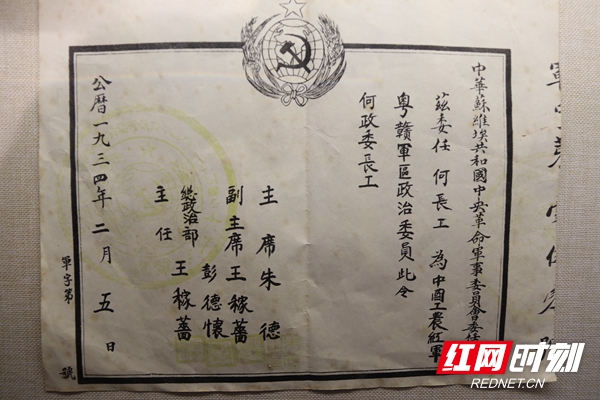 中華蘇維埃共和國中央革命軍事委員會委任
茲委任 何長工 為中國工農紅軍
粵贛軍區政治委員此令
何政委長工
主席朱德
副主席王稼薔
彭德懷
總政治部
主任 王稼薔
公曆一九三四年二月五日
軍字第 號
红网时刻
REDNET.CN